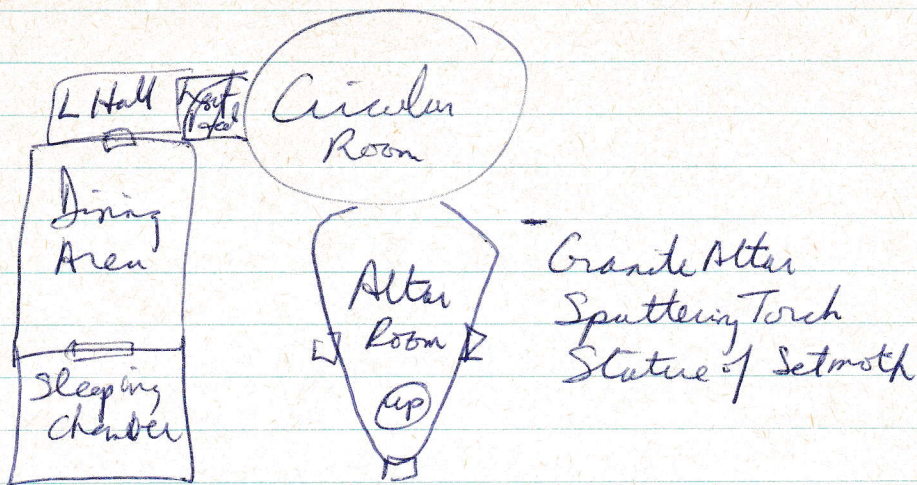 L Hall
Circular
Room
Dining
Area
Sleeping
Chamber
Altar
Room
up
Granite Altar
Sputtering Torch
Stature of Setmoth